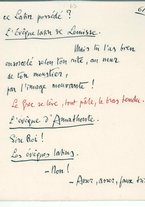 ce Latin possédé ?
L'évêque latin de
Mais tu l'as bien
selon ton rite, au
de ton monstier,
par l'image mouvante !
Le Grec se lève, tout pâle, le bras tendu.
L'évêque d'Amathonte
Sire Roi !
Les évêques latins
– Non !
Assez, assez, faux